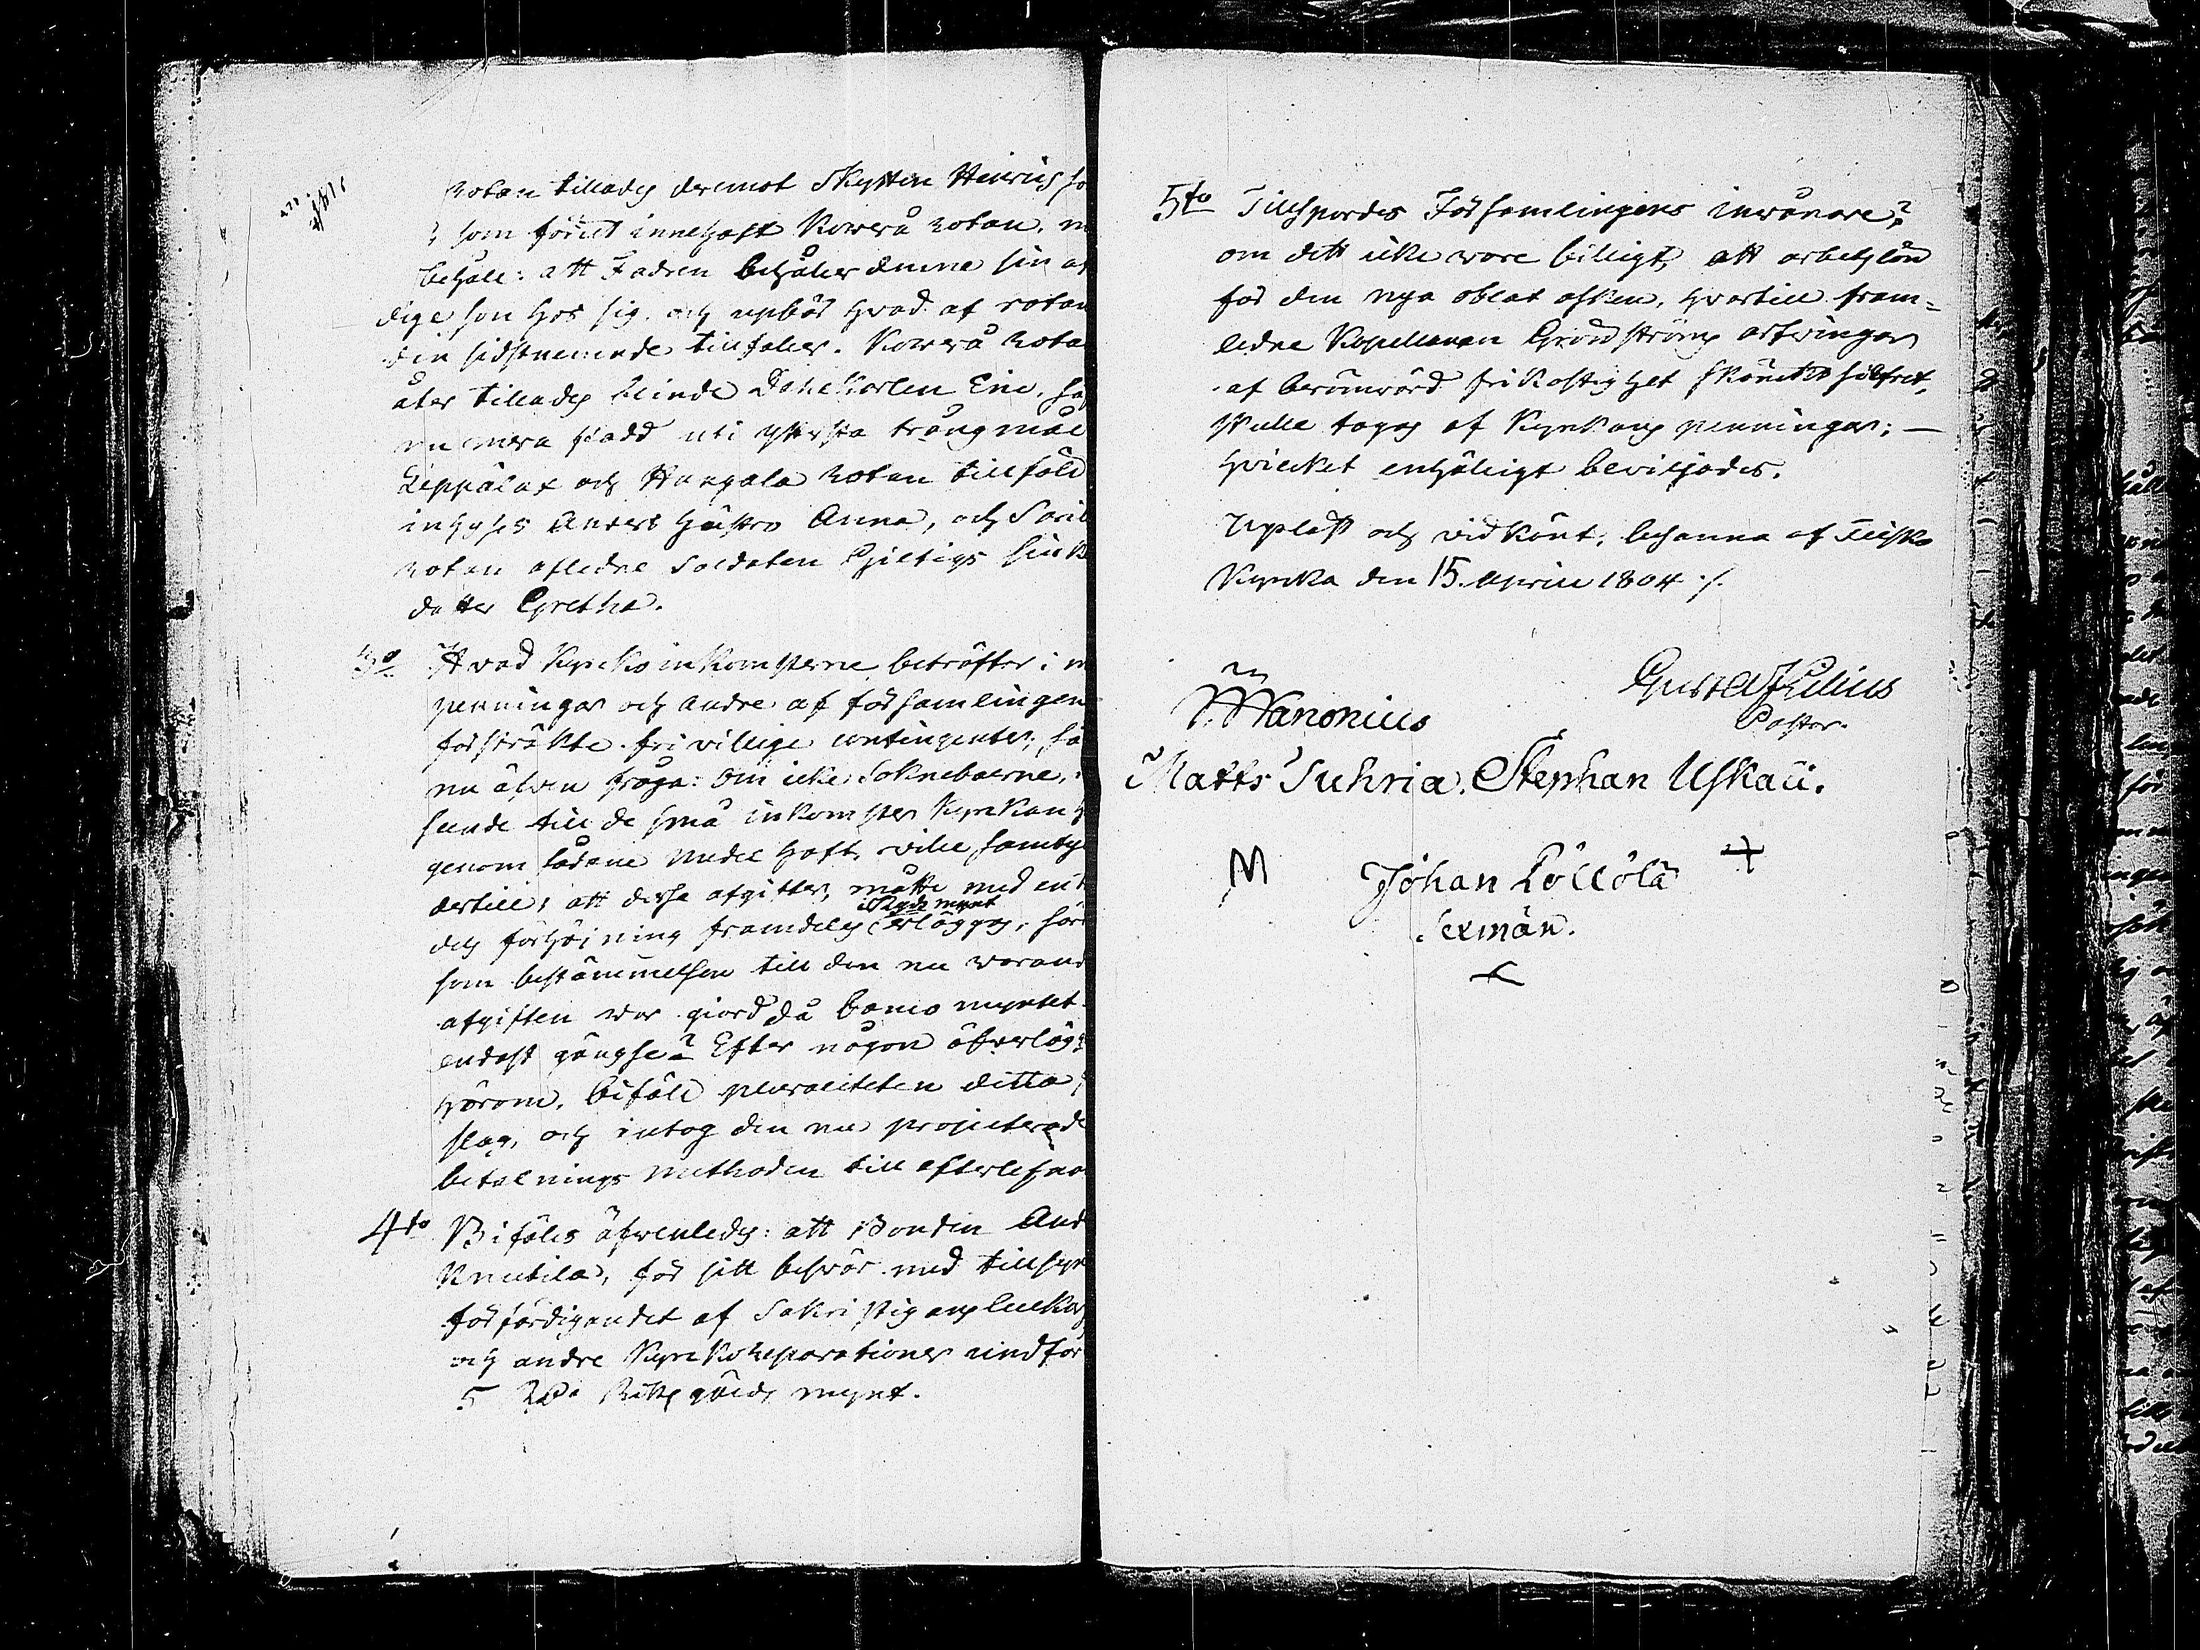 rotan tillades deremot Skytten Henrics so
som förut innehaft Korerå rotan, m
behåll: att Fadren behåller denne sin
dige son hos sig, och upbär hvad af rotan
den sidstnemnde tillfaller. Korerå rota
åter tillades blinde Dahlkarlen Eric,
nu mera stadd uti yttersta trångmål
Leppälax och Hangala rotan tillföll
inhyses Anders hustro Anna, och
rotan aflidne Soldaten Giltigs
dotter Gretha.
3o Hvad Kyrko inkomsterne beträffar i
penningar och andre af församlingen
försträkte frivillige contingenter, så
nu äfven fråga: Om icke Sokneboerne, i
seende till de små inkomster Kyrkan
genom sådane medel haft, ville samty
dertill, att dessa afgifter, måtte med en
dels förhöjning framdeles i Rgds mynt erläggas, här
som bestämmelsen till den nu warand
afgiften war giord då banco myntet
endast gängse? Efter någon öfverlägg
härom, biföll pluraliteten detta
slag, och intog den nu projecterade
betalnings methoden till efterlefnad
4to Biföls äfwenledes: att Bonden And
Knutila, för sitt beswär med tillsyn
förfärdigandet af Sakristigans luckor
och andre Kyrko reparationer undfår
5 Rd. Riksgälds mynt.
5to Tillspordes Församlingens inwånare?
om dett icke wore billigt, att arbetslön
för den nya oblat asken, hvartill fram-
ledne Kapellanen Grönströms arfwingar
af berömvärd frikostighet skänckt silfret,
skulle tagas af Kyrkans penningar; —
hvilcket enhälligt beviljades.
Upläst och vidkänt, betygas af
Kyrka den 15. Aprill 1804 ./.
Wanonius
Gustaf Lilius
Pastor.
Matts Juhria. Stephan Uskali.
M Johan Löllölä
Sexmän.